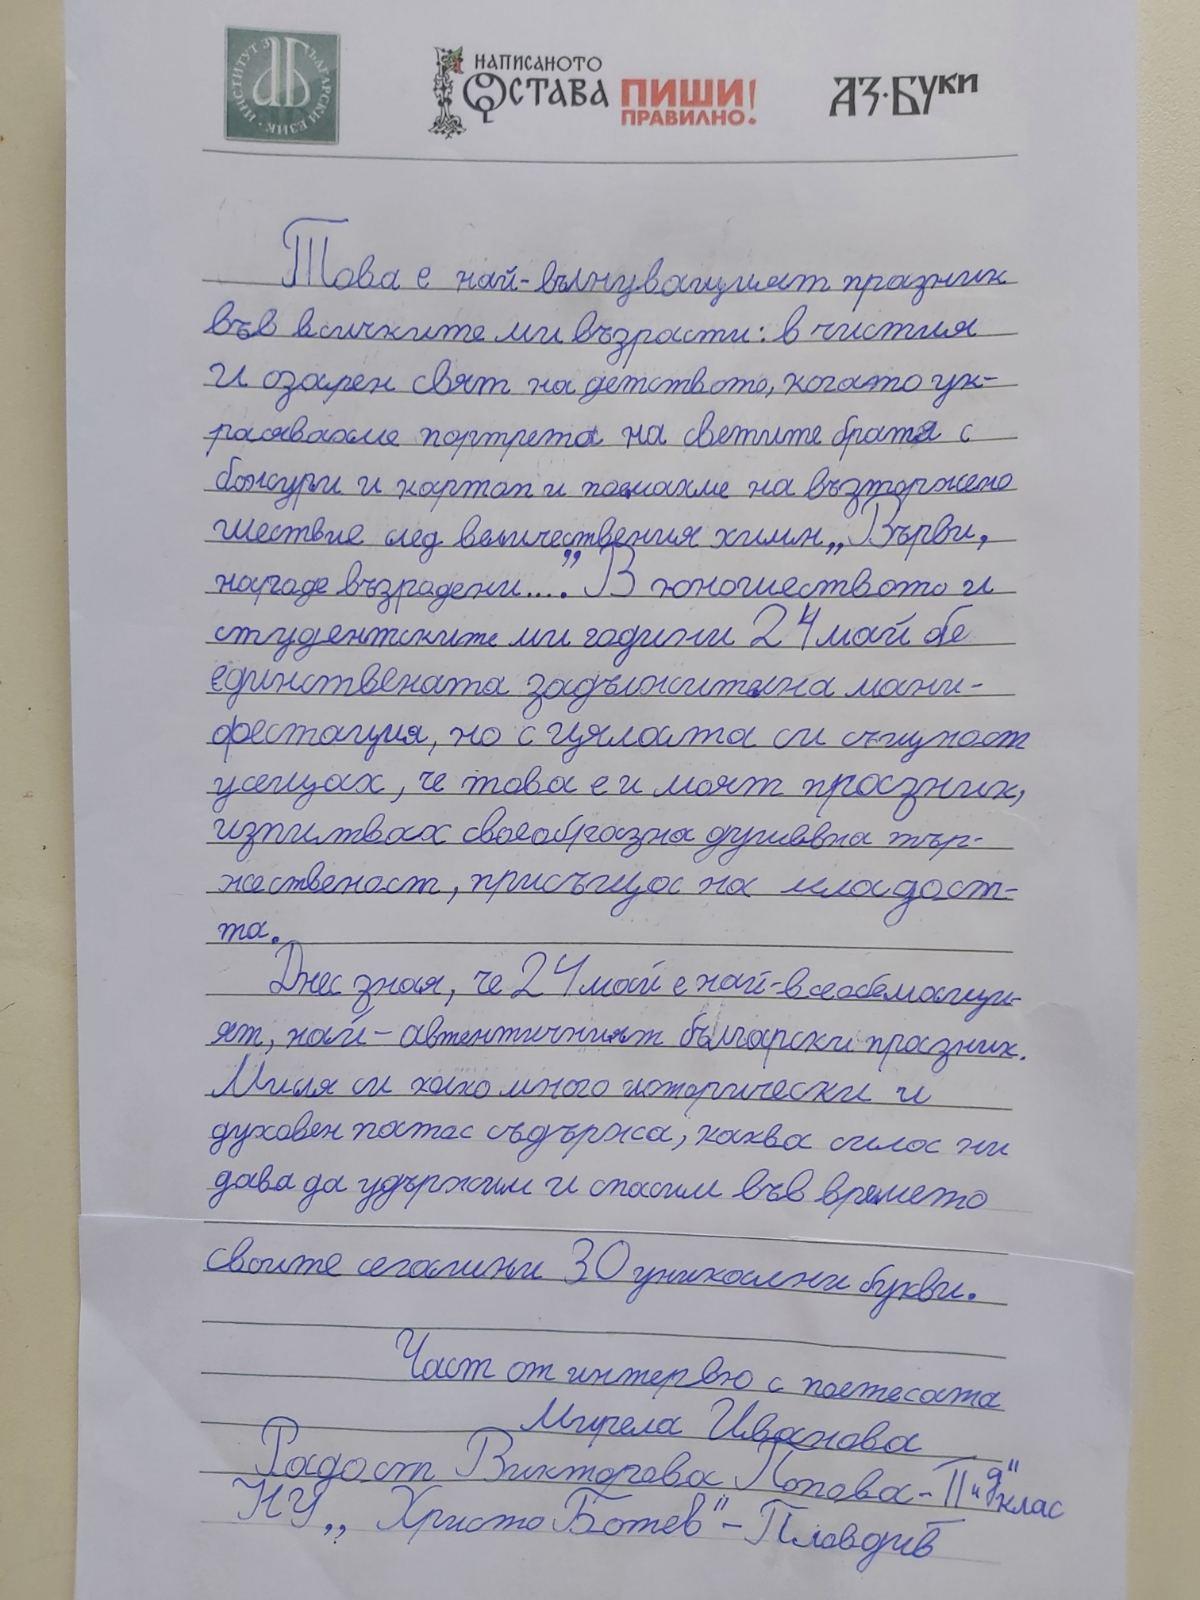 ИНСТИТУТ ЗА БЪЛГАРСКИ ЕЗИК
НАПИСАНОТО
ОСТАВА ПИШИ
ПРАВИЛНО!
АЗ·БУКИ
Това е най-вълнуващият празник
във всичките ми възрасти: в чистия
и озарен свят на детството, когато ук-
расявахме портрета на светите братя с
божури и картоп и поемахме на възторжено
шествие след величествения химн „Върви,
народе възродени....” В юношеството и
студентските ми години 24 май бе
единствената задължителна мани-
фестация, но с цялостта си същност
усещах, че това е и моят празник,
изпитвах своеобразна душевна тър-
жественост, присъща на младост-
та.
Днес зная, че 24 май е най-всеобемащи-
ят, най-автентичният български празник.
Мисля си какво много исторически и
духовен патос съдържа, каква сила ни
дава да удържим и спасим във времето
своите сегашни 30 уникални букви.
Част от интервю с поетесата
Мирела Иванова
Радост Викторова Попова - II "д" клас
НУ „Христо Ботев" - Пловдив